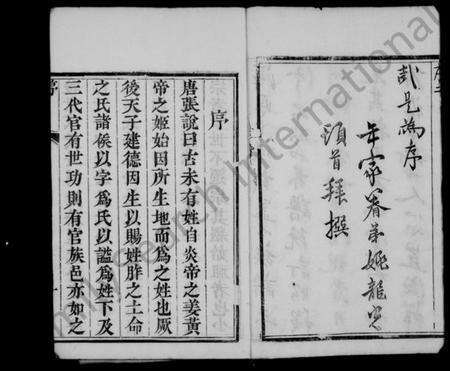 哉是為序
年家眷弟姚龍光
頓首拜撰
序
唐張說曰古未有姓自炎帝之姜黃
帝之姬始因所生地而為之姓也厥
後天子建德因生以賜姓胙之土命
之氏諸侯以字為氏以諡為姓下及
三代官有世功則有官族邑亦如之
序
一
FamilySearch International